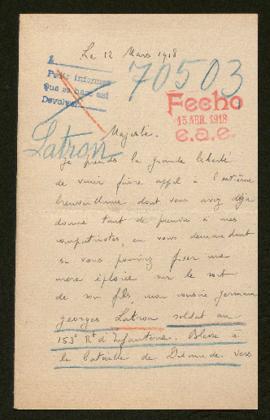 Le 12 Mars 1918
A
Pedir informes
que se hace así
Devolver
70503
Fecho
15 ABR. 1918
e.a.e.
Latron
Majesté.
Je prends la grande liberté
de venir faire appel à l'extrême
bienveillance dont vous avez déjà
donné tant de preuves à mes
compatriotes en vous demandant
si vous pouviez fixer une
mère éplorée sur le sort
de son fils, mon cousin germain
georges Latron soldat au
153e Rt d'Infanterie. Blessé à
la bataille de Dixmude vers